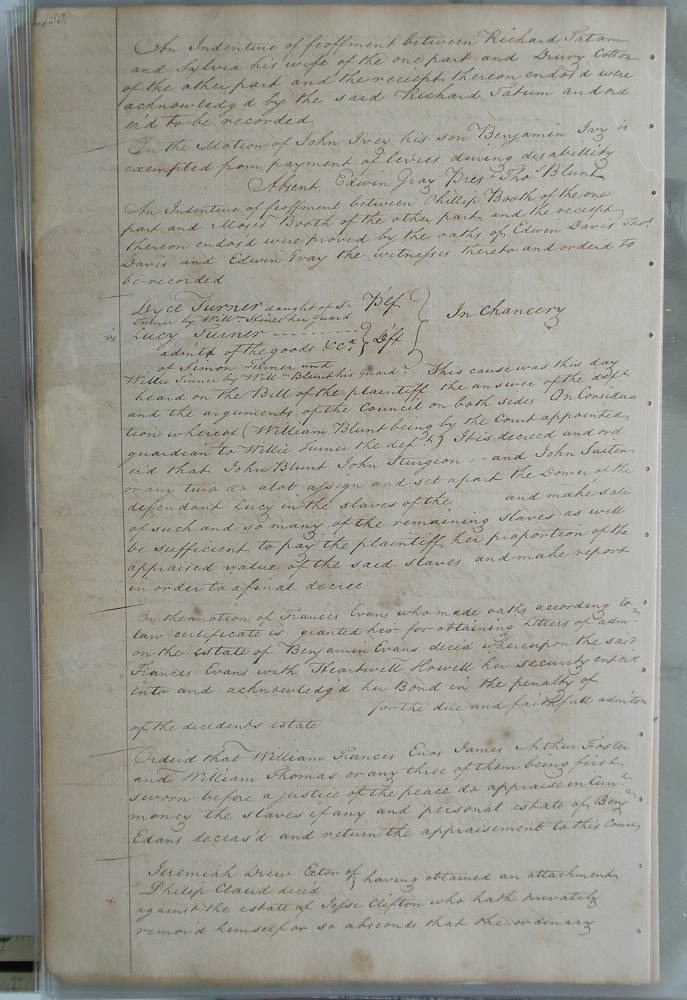 130.
An Indenture of feoffment between Richard Tatam
and Sylvia his wife of the one part and Drury Cotton
of the other part and the receipt thereon endos'd were
acknowledg'd by the said Richard Tatum and ord
er'd to be recorded.
On the Motion of John Ivey his son Benjamin Ivy is
exempted from payment of levies during disabillity
Absent, Edwin Gray Pres.t Tho.s Blunt
An Indenture of feoffment between Phillip Booth of the one
part and Moses Booth of the other part and the receipt
thereon endos'd were proved by the oaths of Edwin Davis Tho.s
Davis and Edwin Gray the witnesses thereto and order'd to
be recorded
Joyce Turner daught of S. Pl'ef.
Turner by Will.m Hines her Guard In Chancery
vs
Lucy Turner
admt.x of the goods &c.a Def.t
of Simon Turner and
Willie Turner by Will.m Blunt his Guard.n This cause was this day
heard on the Bill of the plaintiff the answer of the def.t
and the arguments of the Council on both sides On Considera
tion whereof (William Blunt being by the Court appointed
guardian to Willie Turner the def.t) It is decreed and ord
er'd that John Blunt John Sturgeon and John Suiter
or any two do alot assign and set apart the Dower of the
defendant Lucy in the slaves of the and make sale
of such and so many of the remaining slaves as will
be sufficient to pay the plaintiff her proportion of the
appraised value of the said slaves and make report
in order to a final decree
On the motion of Frances Evans who made oaths according to
law certificate is granted for obtaining Letters of adm.n
on the estate of Benjamin Evans dece'd whereupon the said
Frances Evans with Heartwell Howell her security enter'd
into and acknowledg'd her Bond in the penalty of
for the due and faithfull admiton
of the decedents estate
Order'd that William Francis Enos James Arthur Foster
and William Thomas or any three of them being first
sworn before a justice of the peace do appraise in Curr.t
money the slaves if any and personal estate of Ben.j
Evans deceas'd and return the appraisement to this Court
Jeremiah Drew Extor of having obtained an attachment
Philip Claud deced
against the estate of Jesse Clifton who hath privately
remov'd himself or so absconds that the ordinary